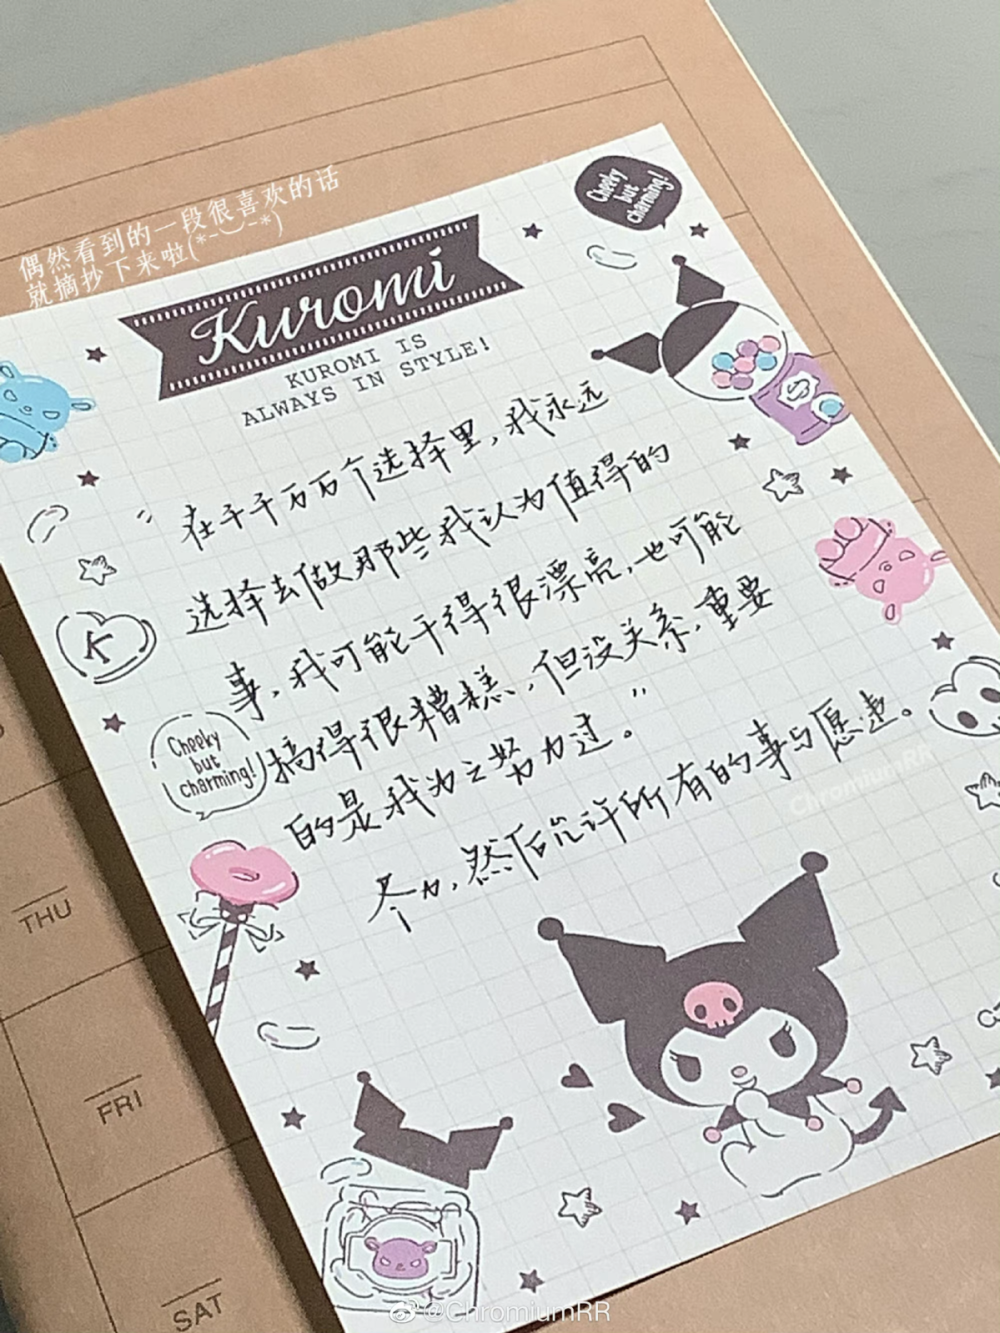 偶然看到的一段很喜欢的话
就摘抄下来啦(*-◡-*)
Cheeky
but
charming!
Kuromi
KUROMI IS
ALWAYS IN STYLE!
“在千千万万个选择里,我永远
选择去做那些我认为值得的
事,我可能干得很漂亮,也可能
搞得很糟糕,但没关系,重要
的是我为之努力过。”
努力,然后允许所有的事与愿违。
K
Cheeky
but
charming!
ChromiumRR
THU
FRI
SAT
@ChromiumRR